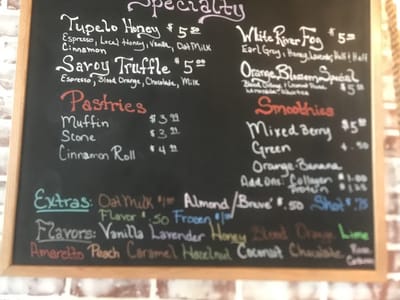 Specialty
Tupelo Honey $5.00
Espresso, Local Honey, Vanilla, Oat Milk
Cinnamon
Savoy Truffle $5.00
Espresso, Blood Orange, Chocolate, Milk
Pastries
Muffin $3.99
Scone $3.99
Cinnamon Roll $4.99
White River Fog $5.00
Earl Grey, Honey, Lavender, Half & Half
Orange Blossom Special
$5.00
Smoothies
Mixed Berry $5
Green
Orange-Banana
Add Ons: Collagen 1.00
Protein
Extras: Oat Milk $1.00 Almond/Breve' $.50 Shot $.75
Flavor $.50 Frozen $1.00
Flavors: Vanilla Lavender Honey Blood Orange Lime
Amaretto Peach Caramel Hazelnut Coconut Chocolate